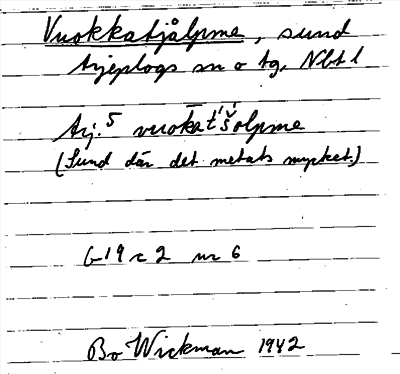 Vuokkatjålpme, sund
Arjeplogs sn o tg, Nbt l
Arj. 5 vuoka͞t't́šolpme
(Sund där det metats mycket.)
G 19 c 2 nr 6
Bo Wickman 1942